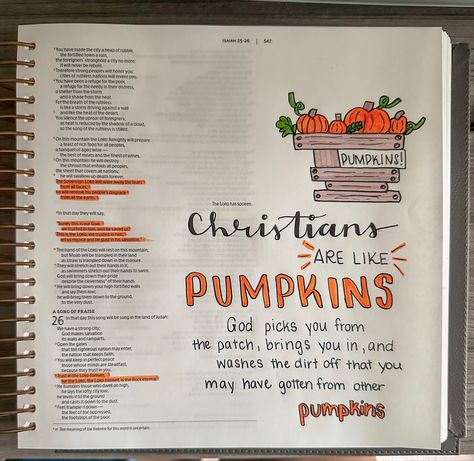 ISAIAH 25-26 | 547
2 You have made the city a heap of rubble,
the fortified town a ruin,
the foreigners' stronghold a city no more;
it will never be rebuilt.
3 Therefore strong peoples will honor you;
cities of ruthless nations will revere you.
4 You have been a refuge for the poor,
a refuge for the needy in their distress,
a shelter from the storm
and a shade from the heat.
For the breath of the ruthless
is like a storm driving against a wall
5 and like the heat of the desert.
You silence the uproar of foreigners;
as heat is reduced by the shadow of a cloud,
so the song of the ruthless is stilled.
6 On this mountain the LORD Almighty will prepare
a feast of rich food for all peoples,
a banquet of aged wine —
the best of meats and the finest of wines.
7 On this mountain he will destroy
the shroud that enfolds all peoples,
the sheet that covers all nations;
8 he will swallow up death forever.
The Sovereign LORD will wipe away the tears
from all faces;
he will remove his people's disgrace
from all the earth.
The LORD has spoken.
9 In that day they will say,
"Surely this is our God;
we trusted in him, and he saved us.
This is the LORD, we trusted in him;
let us rejoice and be glad in his salvation."
10 The hand of the LORD will rest on this mountain;
but Moab will be trampled in their land
as straw is trampled down in the manure.
11 They will stretch out their hands in it,
as swimmers stretch out their hands to swim.
God will bring down their pride
despite the cleverness of their hands.
12 He will bring down your high fortified walls
and lay them low;
he will bring them down to the ground,
to the very dust.
A SONG OF PRAISE
26 In that day this song will be sung in the land of Judah:
We have a strong city;
God makes salvation
its walls and ramparts.
2 Open the gates
that the righteous nation may enter,
the nation that keeps faith.
3 You will keep in perfect peace
those whose minds are steadfast,
because they trust in you.
4 Trust in the LORD forever,
for the LORD, the LORD himself, is the Rock eternal.
5 He humbles those who dwell on high,
he lays the lofty city low;
he levels it to the ground
and casts it down to the dust.
6 Feet trample it down —
the feet of the oppressed,
the footsteps of the poor.
The meaning of the Hebrew for this word is uncertain.
PUMPKINS!
Christians
ARE LIKE
PUMPKINS
God picks you from
the patch, brings you in, and
washes the dirt off that you
may have gotten from other
pumpkins